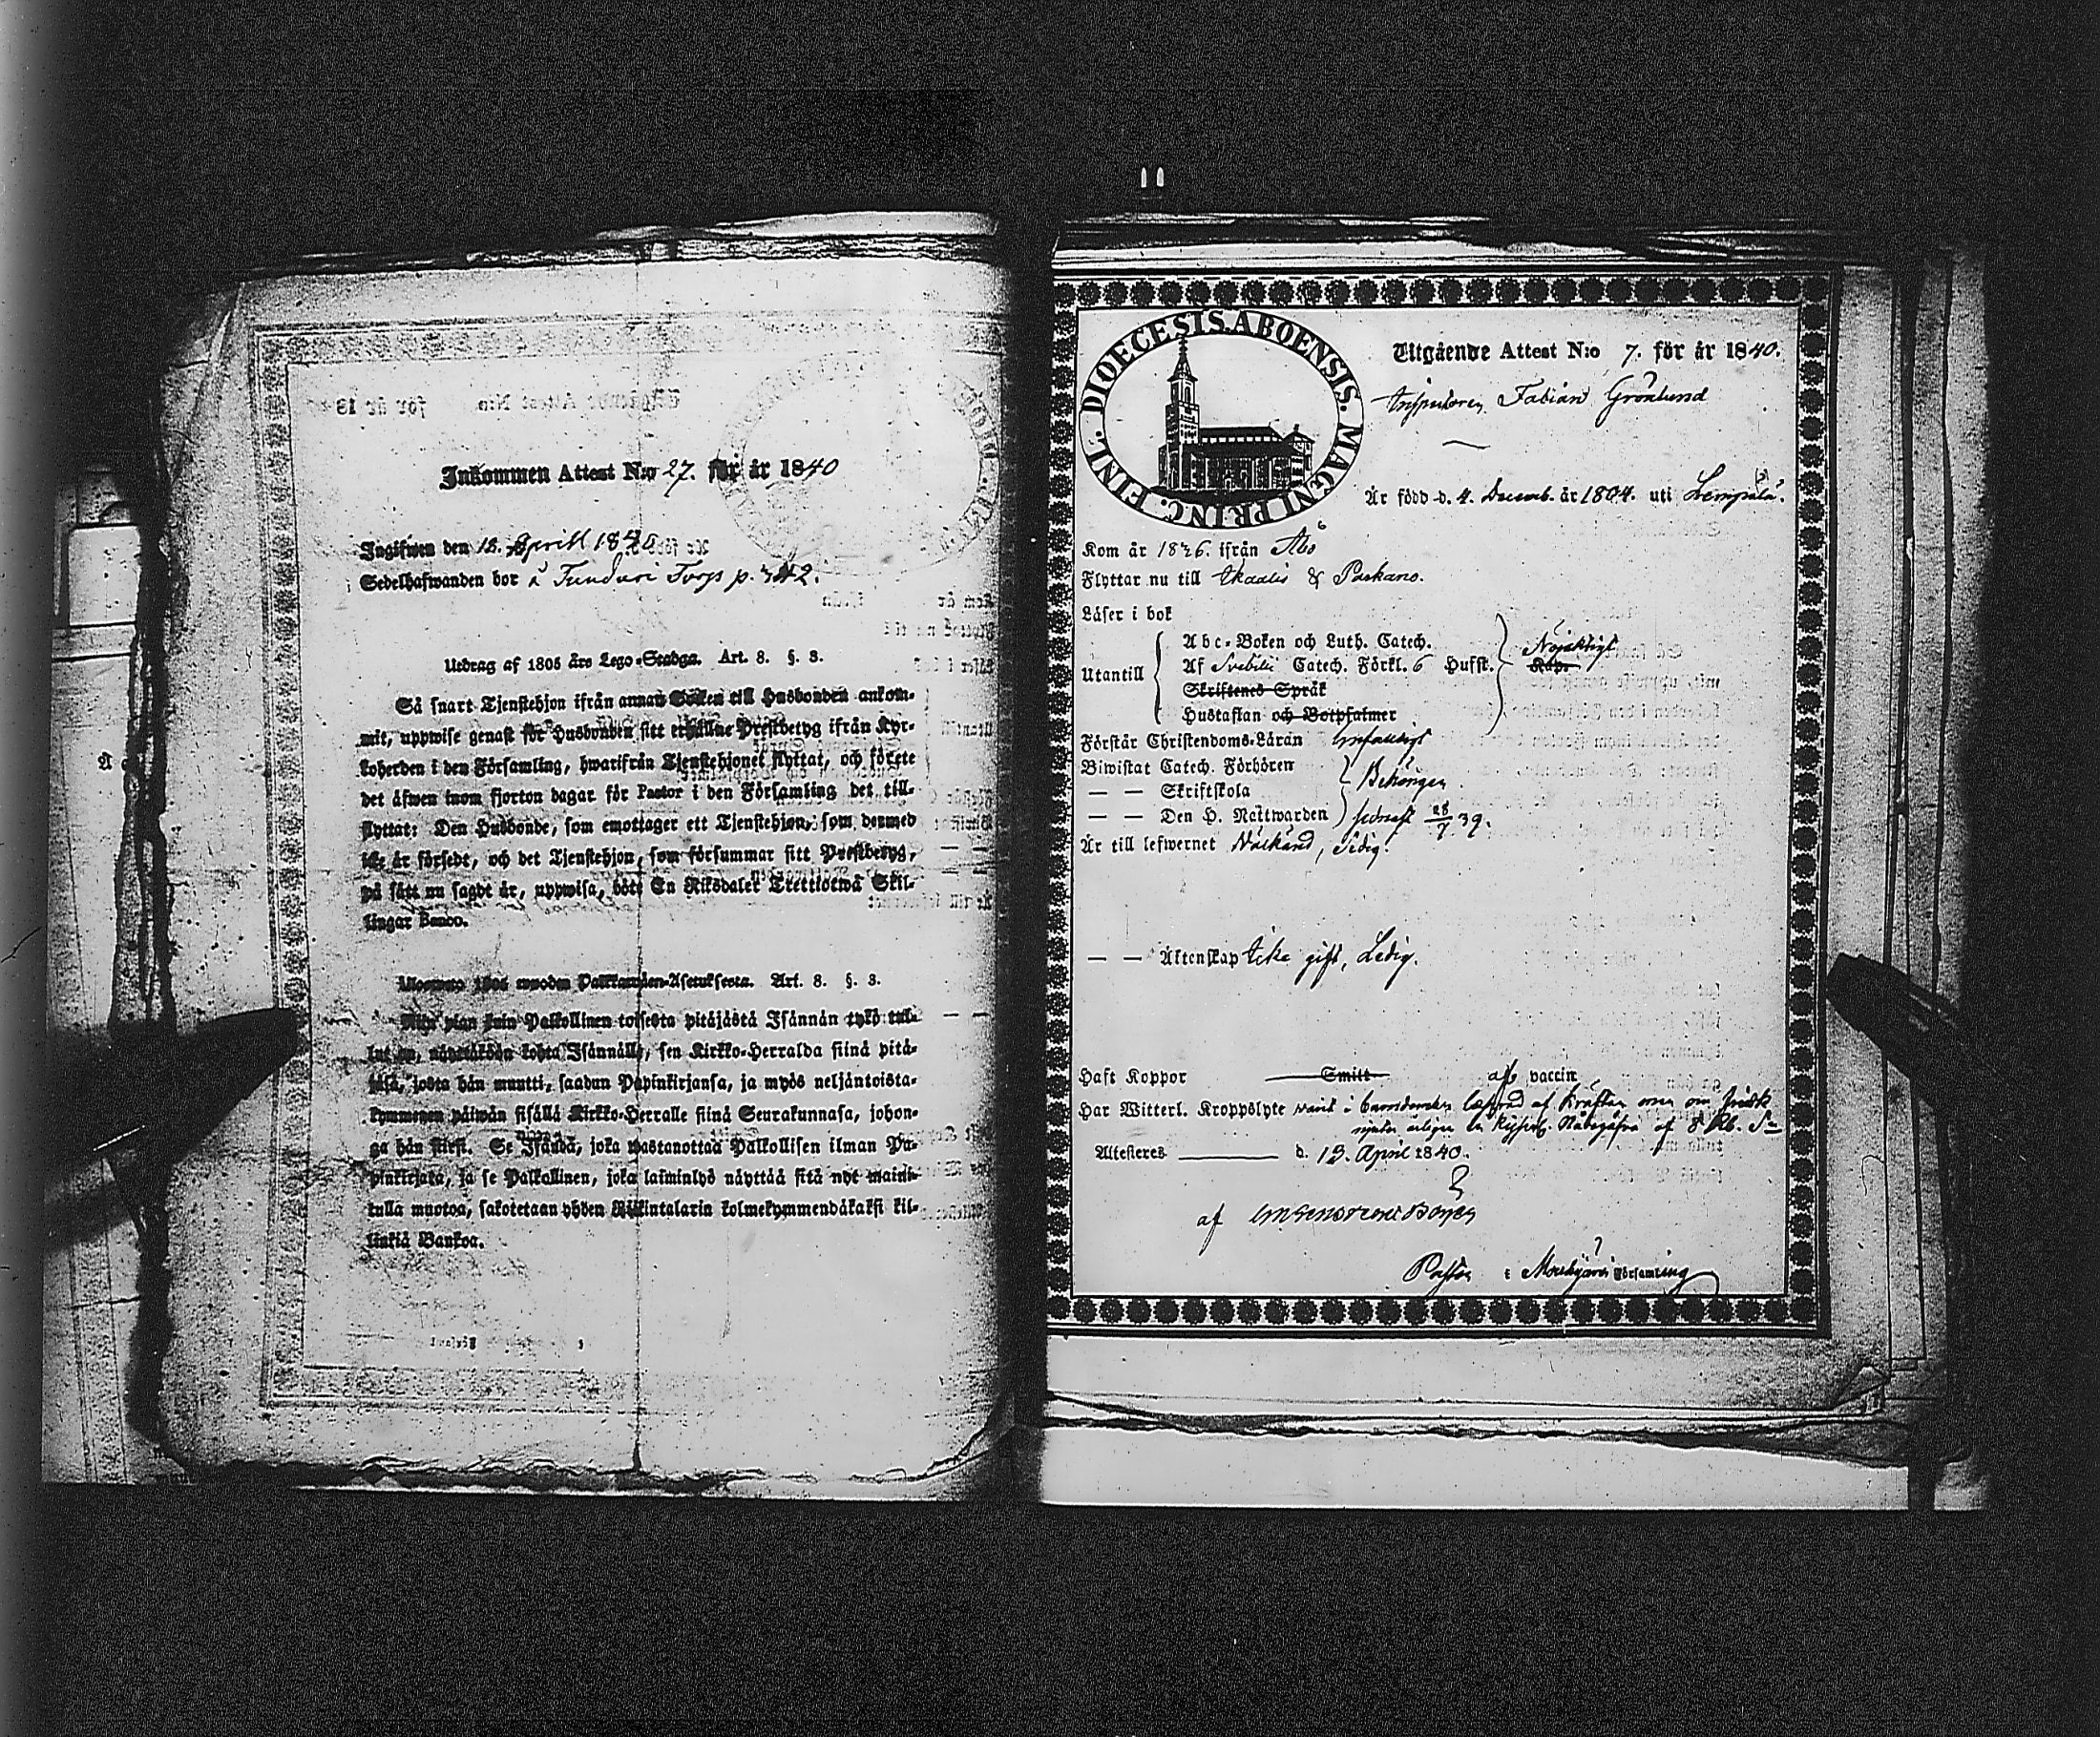 Inkommen Attest N:o 27. för år 1840
Ingifwen den 18. Aprill 1840
Sedelhafwanden bor å Tunduri Torp p. 342.
Utdrag af 1805 års Lego-Stadga. Art. 8. §. 3.
Så snart Tjenstehjon ifrån annan Socken till Husbonden ankom-
mit, uppwise genast för Husbonden sitt erhållne Prestbetyg ifrån Kyr-
koherden i den Församling, hwarifrån Tjenstehjonet flyttat, och förete
det äfwen inom fjorton dagar för Pastor i den Församling det till-
flyttat: Den Husbonde, som emottager ett Tjenstehjon, som dermed
icke är försedt, och det Tjenstehjon, som försummar sitt Prestbetyg,
på sätt nu sagdt är, uppwisa, böte En Riksdaler Trettiotwå Skil-
lingar Banco.
Ulosweto 1805 wuoden Palkkawäen-Asetuksesta. Art. 8. §. 3.
Niin pian kuin Palkollinen toisesta pitäjästä Isännän tykö tul-
lut on, näyttäköön kohta Isännälle, sen Kirkko-Herralda siinä pitä-
jäsä, josta hän muutti, saadun Papinkirjansa, ja myös neljäntoista-
kymmenen päiwän sisällä Kirkko-Herralle siinä Seurakunnasa, johon-
ga hän siirsi. Se Isändä, joka wastanottaa Palkollisen ilman Pa-
pinkirjata, ja se Palkollinen, joka laiminlyö näyttää sitä nyt maini-
tulla muotoa, sakotetaan yhden Riikintalarin kolmekymmendäkaksi kil-
linkiä Bankoa.
DIOECESIS ABOENSIS. MAGNI PRINC. FINL.
Utgående Attest N:o 7. för år 1840.
Inspectoren Fabian Grönlund
Är född d. 4. Decemb. år 1804. uti Lempälä.
Kom år 1826. ifrån Åbo
Flyttar nu till Ikalis & Parkano.
Läser i bok
Utantill
Abc-Boken och Luth. Catech.
Af Svebilii Catech. Förkl. 6 Husst. Nöjaktigt
Skriftenes Språk
Hustaflan och Botpsalmer
Förstår Christendoms-Läran
Biwistat Catech. Förhören
— — Skriftskola Behörigen
— — Den H. Nattwarden sednast 28/7 39.
Är till lefwernet Wälkänd, Sedig.
— — Äktenskap Icke gift, Ledig.
Haft Koppor Smitt af vaccin
Har Witterl. Kroppslyte varit i barndomen
Attesteras d. 13. April 1840.
af
Pastor i Mouhijärvi Församling